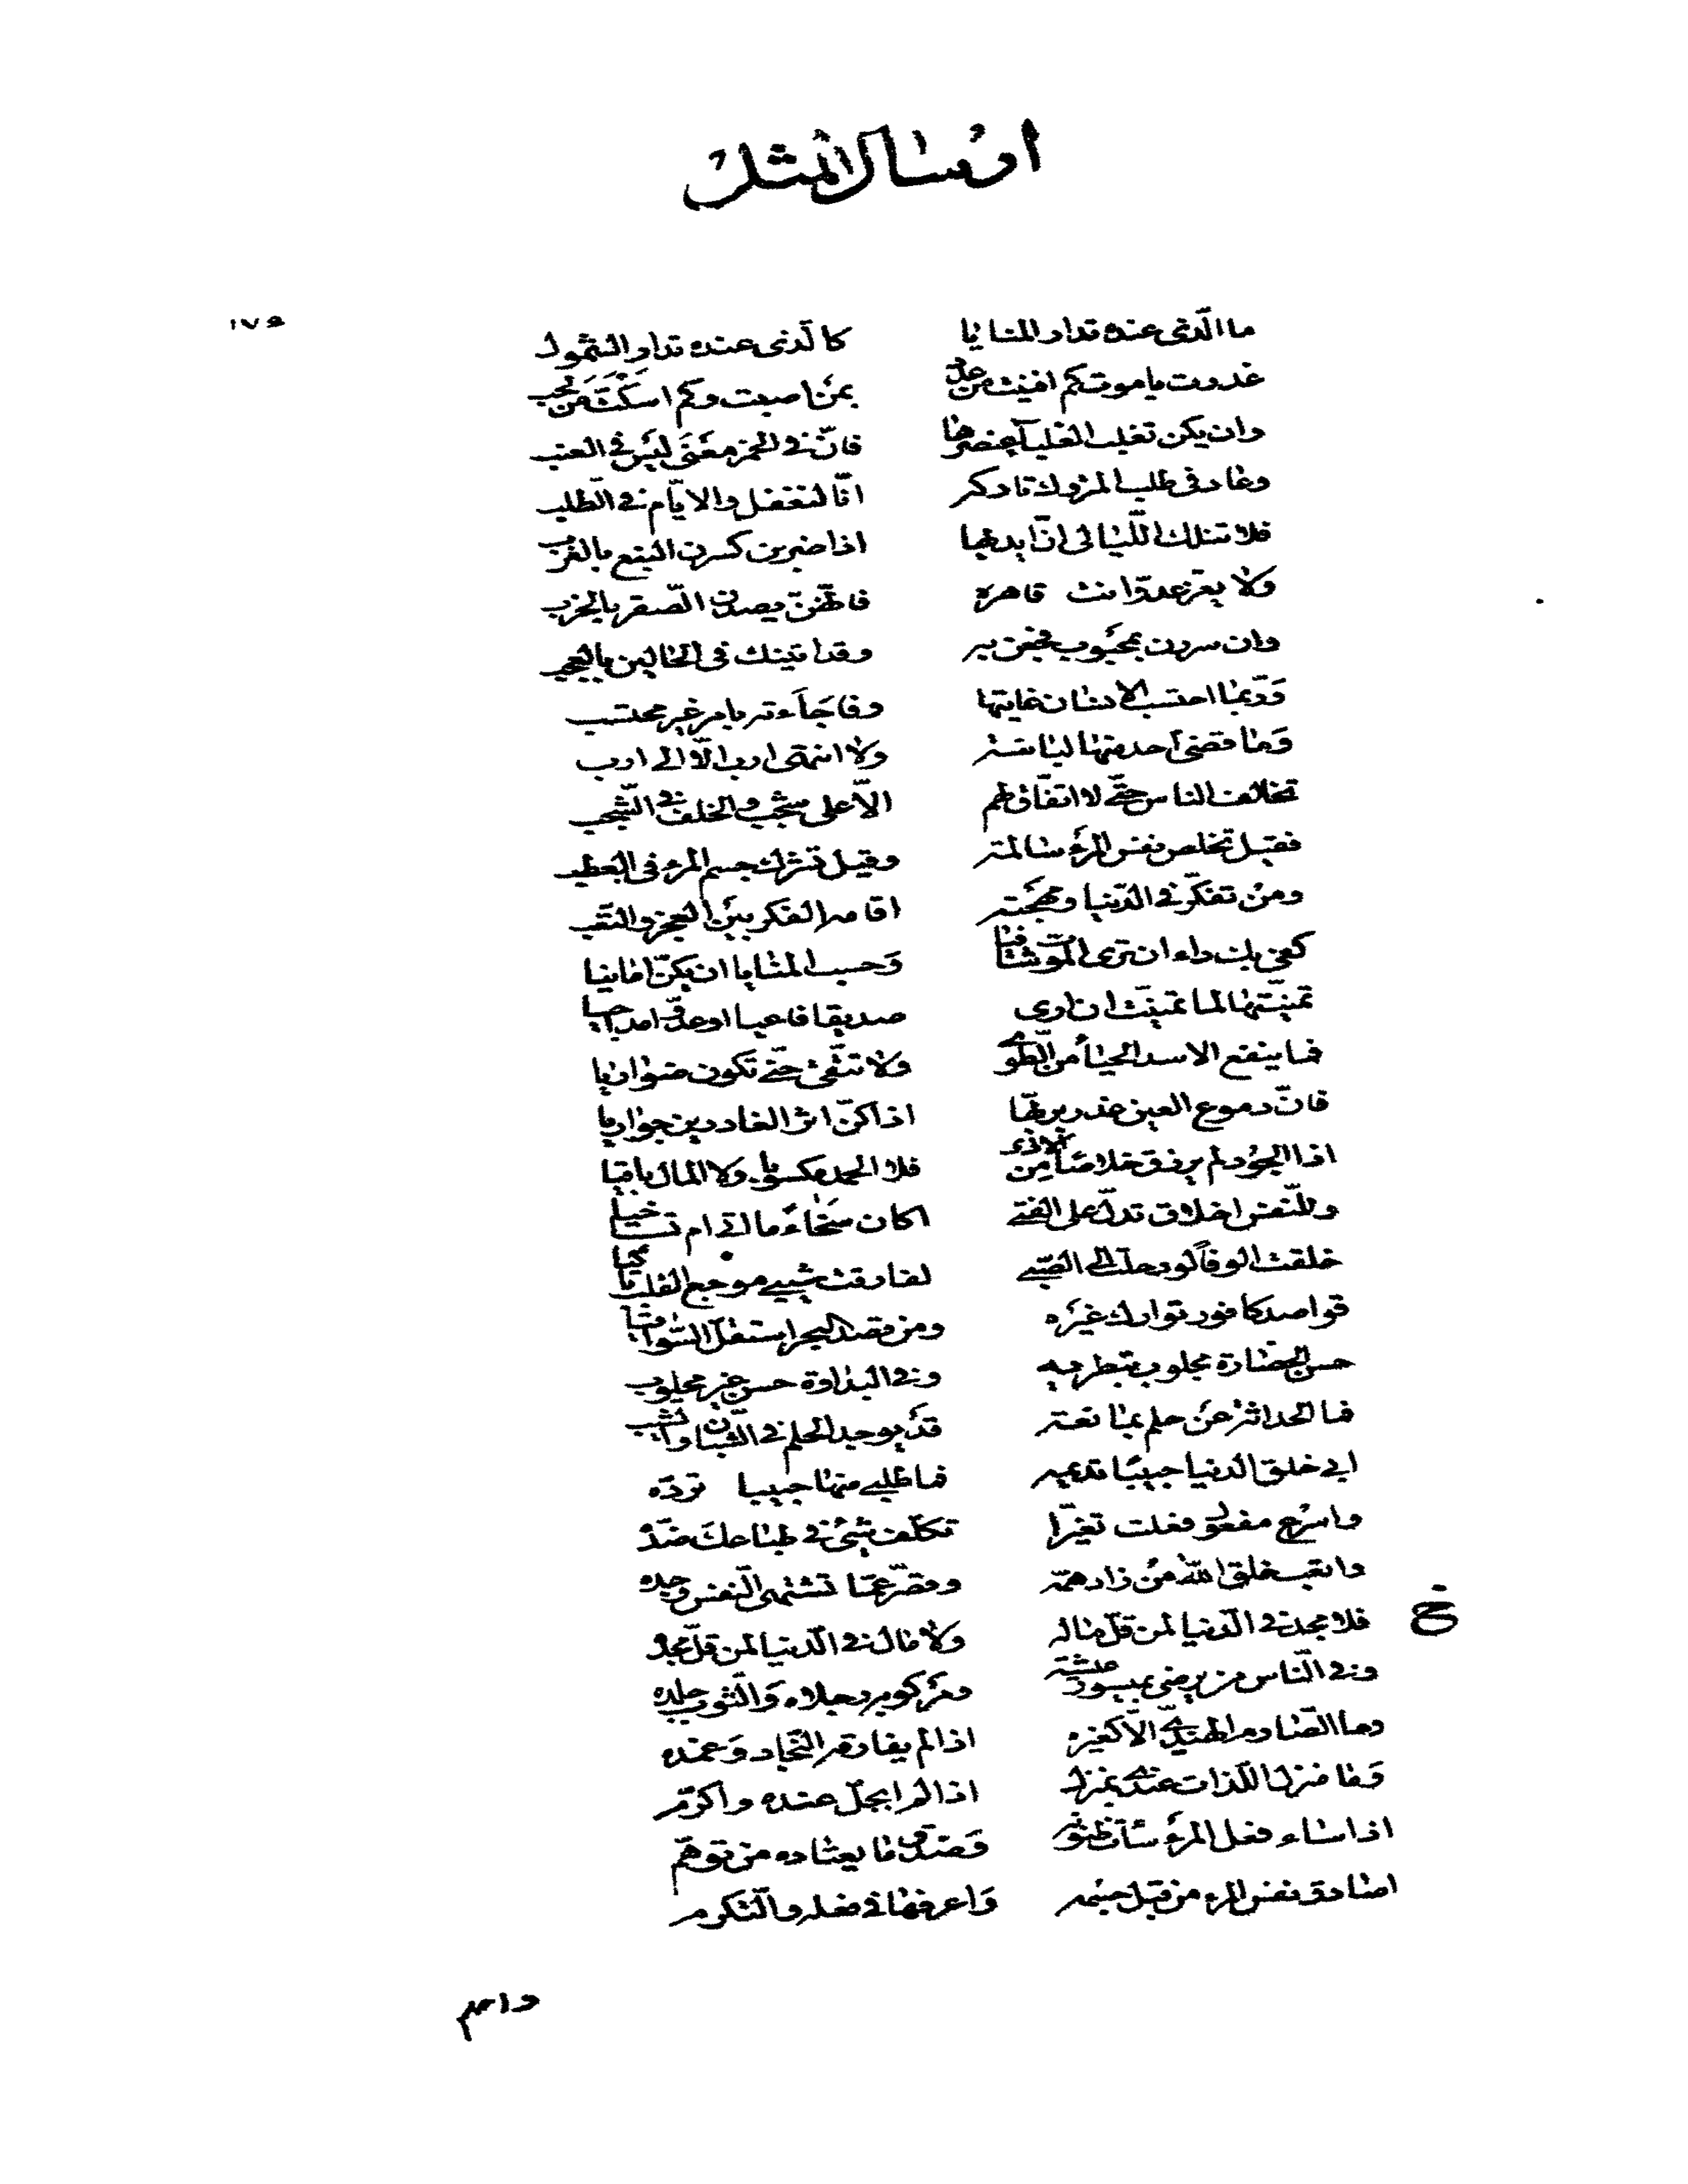 ارسال المثل
١٧٥
ما الّذى عنده تدار المنايا كالّذى عنده تدار الشّمول
غدرت ياموت كم افنيت من عدد بمن اصبت وكم اسكتّ من لجب
وان يكن تغلب الغلبآء عنصرها فانّ فى الخمر معنىً ليس فى العنب
وعاد فى طلب المتروك تاركه انّا لنغفل والايّام فى الطّلب
فلا تنلك اللّيالى انّ ايديها اذا ضربن كسرن النبع بالغرب
ولا يعن عدوّا انت قاهره فانّهنّ يصدن الصّقر بالخرب
وان سررن بمحبوب فجعن به وقد اتينك فى الحالين بالعجب
وربّما احتسب الانسان غايتها وفاجأته بامر غير محتسب
وما قضى احد منها لبانته ولا انتهى ارب الّا الى ارب
تخالف الناس حتّى لا اتّفاق لهم الّا على شجب والخلف فى الشّجب
فقيل تخلص نفس المرء سالمة وقيل تشرك جسم المرء فى العطب
ومن تفكّر فى الدّنيا ومهجته اقامه الفكر بين العجز والتّعب
كفى بك داء ان ترى الموت شافيا وحسب المنايا ان يكنّ امانيا
تمنّيتها لما تمنّيت ان ارى صديقا فاعيا او عدوّا مداجيا
فما ينفع الاسد الحياء من الطّوى ولا تتّقى حتّى تكون ضواريا
فانّ دموع العين غدر بربّها اذا كنّ اثر الغادرين جواريا
اذا الجود لم يرزق خلاصا من الاذى فلا الحمد مكسوبا ولا المال باقيا
وللنّفس اخلاق تدلّ على الفتى اكان سخاءً ما اتى ام تساخيا
خلقت الوفا لو رحلت الى الصّبى لفارقت شيبى موجع القلب باكيا
قواصد كافور توارك غيره ومن قصد البحر استقلّ السّواقيا
حسن الحضارة مجلوب بتطرية وفى البداوة حسن غير مجلوب
فما الحداثة عن حلم بمانعة قد يوجد الحلم فى الشّبّان والشيب
ابى خلق الدنيا حبيبًا تديمه فما طلبى منها حبيبا تردّه
واسرع مفعول فعلت تغيّرا تكلّف شىء فى طباعك ضدّه
واتعب خلق اللّه من زاد همّه وقصّر عمّا تشتهى النّفس وجده
فلا مجد فى الدّنيا لمن قلّ ماله ولا مال فى الدّنيا لمن قلّ مجده
وفى النّاس من يرضى بميسور عيشة ومركوبه رجلاه والثّوب جلده
وما الصّارم الهندىّ الّا كغيره اذا لم يفارقه النّجاد وغمده
وما منزل اللّذات عندى بمنزل اذا لم ابجّل عنده واكرّم
اذا ساء فعل المرء سآت ظنونه وصدّق ما يعتاده من توهّم
اصادق نفس المرء من قبل جسمه واعرفها فى فعله والتّكرم
خ
واحلم